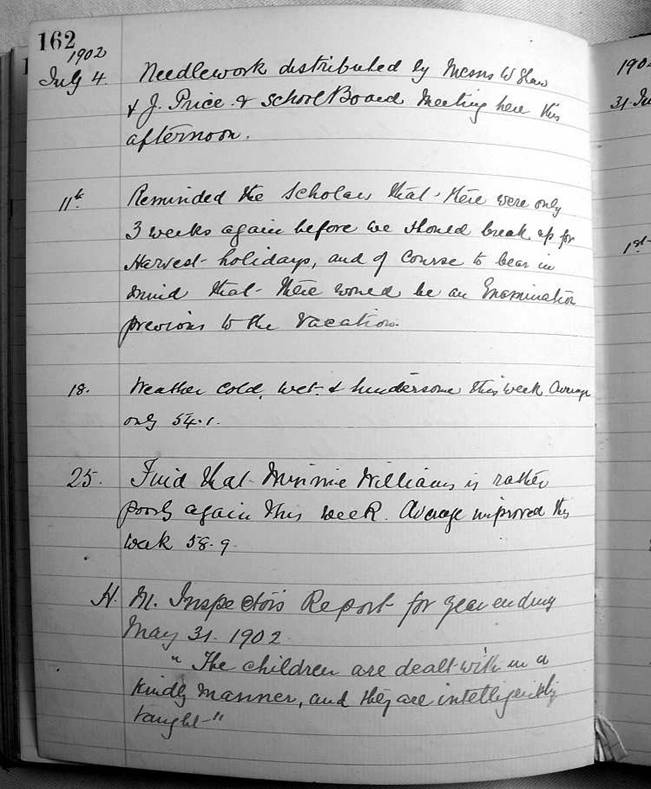 162
1902
July 4. Needlework distributed by Messrs W Shaw
& J. Price & School Board Meeting here this
afternoon.
11th Reminded the Scholars that there were only
3 weeks again before we should break up for
Harvest holidays, and of course to bear in
mind that there would be an Examination
previous to the Vacation.
18. Weather cold, wet & this week Average
only 54.1.
25. Find that Minnie Williams is rather
poorly again this week. Average improved this
week 58.9.
H. M. Inspector's Report for year ending
May 31. 1902.
"The children are dealt with in a
kindly manner, and they are intelligently
taught"
1902
31
1st